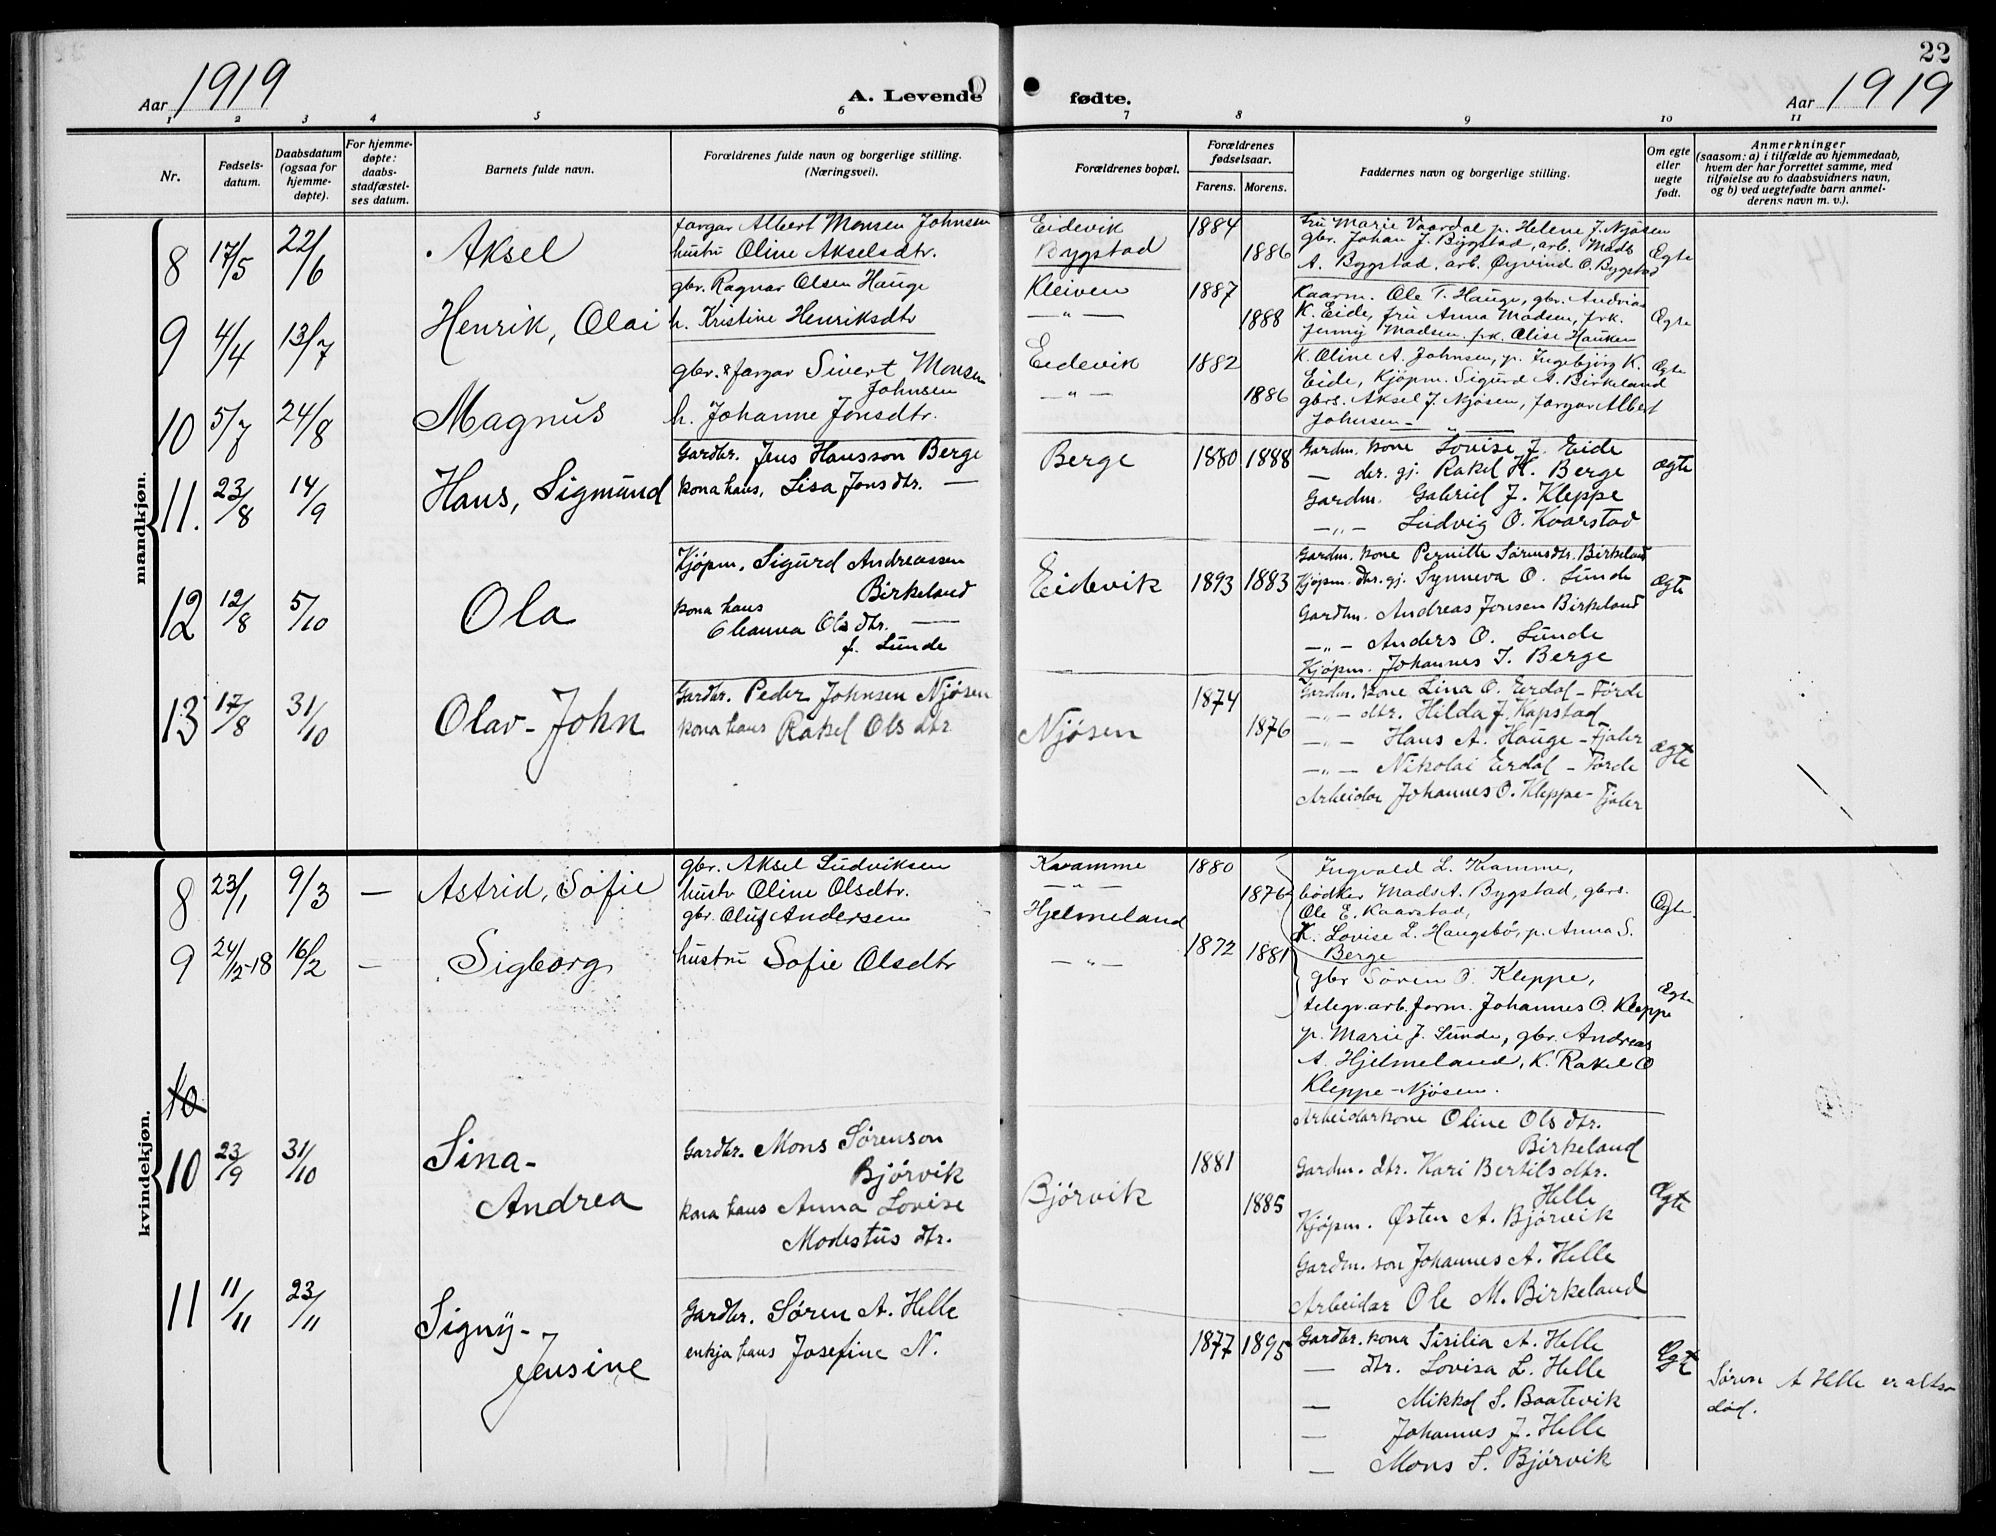 22
Aar 1919
A. Levende fødte.
Aar 1919
1 2 3 4 5 6 7 8 9 10 11
Nr.
Fødsels-
datum.
Daabsdatum
(ogsaa for
hjemme-
døpte).
For hjemme-
døpte:
daabs-
stadfæstel-
ses datum.
Barnets fulde navn.
Forældrenes fulde navn og borgerlige stilling.
(Næringsvei).
Forældrenes bopæl.
Forældrenes
fødselsaar.
Farens. Morens.
Faddernes navn og borgerlige stilling.
Om egte
eller
uegte
født.
Anmerkninger
(saasom: a) i tilfælde av hjemmedaab,
hvem der har forrettet samme, med
tilføielse av to daabsvidners navn,
og b) ved uegtefødte barn anmel-
derens navn m. v.).
mandkjøn.
8 17/5 22/6 Aksel
fargar Albert Monsen Johnsen
hustru Oline Akselsdtr.
Eidevik
Bygstad
1884 1886
Fru Marie Vaardal p. Helene J. Njøsen
gbr. Johan J. Bygstad, arb. Mads
A. Bygstad, arb. Øyvind O. Bygstad
Ægte
9 4/4 13/7 Henrik, Olai
gbr. Ragnar Olsen Hauge
h. Kristine Henriksdtr
Kleiven
—"—
1887 1888
Kaarm. Ole T. Hauge, gbr. Andrias
K. Eide, fru Anna Madsen, frk.
Jenny Madsen, frk. Olise Hauken
Ægte
10 5/7 24/8 Magnus
gbr. & fargar Sivert Monsen
Johnsen
h. Johanne Jonsdtr.
Eidevik
—"—
1882 1886
K. Oline A. Johnsen, p. Ingebjørg K.
Eide, Kjøpm. Sigurd A. Birkeland
gbrs. Aksel J. Njøsen, fargar Albert
Johnsen — " —
Ægte
11. 23/8 14/9 Hans, Sigmund
Gardbr. Jens Hansson Berge
kona hans, Lisa Jonsdtr. —
Berge
1880 1888
Gardm. kone Lovise J. Eide
— der. gj. Rakel H. Berge
Gardm. Gabriel J. Kleppe
—"— Ludvig O. Kvarstad
ægte
12 12/8 5/10 Ola
Kjøpm. Sigurd Andreassen
Birkeland
kona hans
Oleanna Olsdtr. —
f. Sunde
Eidevik
1893 1883
Gardm. kone Pernille Sørensdtr. Birkeland
Kjøpm. dtr. gj. Synneva O. Sunde
Gardm. Andreas Jonsen Birkeland
—"— Anders O. Sunde
Kjøpm. Johannes J. Berge
ægte
13 17/8 31/10 Olav-John
Gardbr. Peder Johnsen Njøsen
kona hans Rakel Olsdtr
Njøsen
1874 1876
Gardm. kone Lina O. Erdal - Førde
—"— dtr. Hilda J. Kapstad
—"— Hans A. Hauge - Fjaler
—"— Nikolai Erdal - Førde
Arbeidar Johannes O. Kleppe - Fjaler
ægte
kvindekjøn.
8 23/1 9/3 — Astrid, Sofie
gbr. Aksel Ludviksen
hustr Oline Olsdtr.
Kvamme
—"—
1880 1876
Ingvald L. Kvamme,
bødker Mads A. Bygstad, gbrs.
Ole E. Kaarstad,
K. Lovise L. Haugsbø, p. Anna S.
Berge
Ægte
9 24/12-18 16/2 — Sigborg
gbr. Oluf Andersen
hustru Sofie Olsdtr
Hjelmeland
—"—
1872 1881
gbr Søren O. Kleppe,
telegr.arb.form. Johannes O. Kleppe
p. Marie J. Sunde, gbr. Andreas
A. Hjelmeland, K. Rakel O
Kleppe - Njøsen.
Ægte
10
10 23/9 31/10 Sina-
Andrea
Gardbr. Mons Sørenson
Bjørvik
kona hans Anna Lovise
Modestus dtr.
Bjørvik
1881 1885
Arbeidarkone Oline Olsdtr.
Birkeland
Gardm. dtr. Kari Bertils dtr.
Helle
Kjøpm. Østen A. Bjørvik
Gardm. son Johannes A. Helle
Arbeidar Ole M. Birkeland
Ægte
11 11/11 23/11 Signy-
Jensine
Gardbr. Søren A. Helle
enkja hans Josefine N.
1877 1895
Gardbr. kona Sisilia A. Helle
— dtr. Lovisa L. Helle
— Mikkel S. Baatevik
— Johannes J. Helle
— Mons S. Bjørvik
Ægte
Søren A Helle er altso
død.